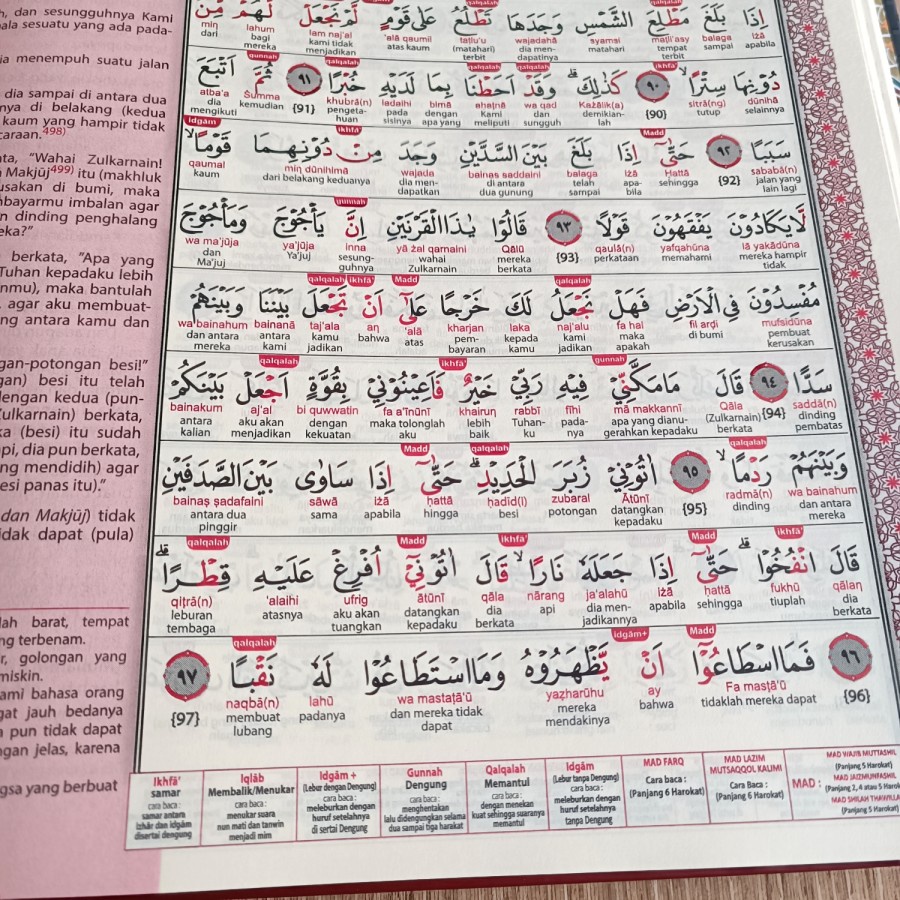 h, dan sesungguhnya Kami
ala sesuatu yang ada pada-
ia menempuh suatu jalan
dia sampai di antara dua
nya di belakang (kedua
kaum yang hampir tidak
caraan.498)
ata, "Wahai Zulkarnain!
Makjūj499) itu (makhluk
usakan di bumi, maka
mbayarmu imbalan agar
n dinding penghalang
eka?"
berkata, "Apa yang
Tuhan kepadaku lebih
nmu), maka bantulah
, agar aku membuat-
ng antara kamu dan
gan-potongan besi!"
gan) besi itu telah
dengan kedua (pun-
ulkarnain) berkata,
ka (besi) itu sudah
pi, dia pun berkata,
ng mendidih) agar
besi panas itu)."
dan Makjūj) tidak
idak dapat (pula)
lah barat, tempat
ng terbenam.
r, golongan yang
miskin.
ami bahasa orang
gat jauh bedanya
a pun tidak dapat
gan jelas, karena
gsa yang berbuat
اِذَا بَلَغَ مَطْلِعَ الشَّمْسِ وَجَدَهَا تَطْلُعُ عَلٰى قَوْمٍ لَّمْ نَجْعَلْ لَّهُمْ مِّنْ
iżā balaga maṭli'asy syamsi wajadahā taṭlu'u 'alā qaumil lam naj'al lahum min
apabila sampai tempat terbit matahari dia men-dapatinya (matahari) terbit atas kaum kami tidak menjadikan bagi mereka dari
ikhfā' qalqalah qalqalah qalqalah qunnah
دُوْنِهَا سِتْرًاۙ ٩٠ كَذٰلِكَۗ وَقَدْ اَحَطْنَا بِمَا لَدَيْهِ خُبْرًا ٩١ ثُمَّ اَتْبَعَ
dūnihā sitrā(ng) {90} Każālik(a) wa qad aḥaṭnā bimā ladaihi khubrā(n) {91} Ṡumma atba'a
selainnya tutup demikian-lah dan sungguh Kami meliputi dengan apa yang pada sisinya pengeta-huan kemudian dia mengikuti
Madd ikhfa' Idgām
سَبَبًا ٩٢ حَتّٰىٓ اِذَا بَلَغَ بَيْنَ السَّدَّيْنِ وَجَدَ مِنْ دُوْنِهِمَا قَوْمًاۙ
sababā(n) {92} Ḥattā iżā balaga bainas saddaini wajada min dūnihimā qaumal
jalan yang lain lagi sehingga apa-bila telah sampai di antara dua gunung dia men-dapatinn dari belakang keduanya kaum
gunnah
لَّا يَكَادُوْنَ يَفْقَهُوْنَ قَوْلًا ٩٣ قَالُوْا يٰذَا الْقَرْنَيْنِ اِنَّ يَأْجُوْجَ وَمَأْجُوْجَ
lā yakādūna yafqahūna qaulā(n) {93} Qālū yā żal qarnaini inna ya'jūja wa ma'jūja
mereka hampir tidak memahami perkataan mereka berkata wahai Zulkarnain sesung-guhnya Ya'juj dan Ma'juj
qalqalah Madd ikhfa' qalqalah
مُفْسِدُوْنَ فِى الْاَرْضِ فَهَلْ نَجْعَلُ لَكَ خَرْجًا عَلٰىٓ اَنْ تَجْعَلَ بَيْنَنَا وَبَيْنَهُمْ
mufsidūna fil arḍi fa hal naj'alu laka kharjan 'alā an taj'ala bainanā wa bainahum
pembuat kerusakan di bumi maka apakah kami jadikan kepada kamu pem-bayaran atas bahwa kamu jadikan antara kami dan antara mereka
gunnah ikhfa' qalqalah
سَدًّا ٩٤ قَالَ مَا مَكَّنِّيْ فِيْهِ رَبِّيْ خَيْرٌ فَاَعِيْنُوْنِيْ بِقُوَّةٍ اَجْعَلْ بَيْنَكُمْ
saddā(n) {94} Qāla mā makkannī fīhi rabbī khairun fa a'īnūnī bi quwwatin aj'al bainakum
dinding pembatas (Zulkarnain) berkata apa yang dianu-gerahkan kepadaku pada-nya Tuhan-ku lebih baik maka tolonglah aku dengan kekuatan aku akan menjadikan antara kalian
qalqalah qalqalah Madd
وَبَيْنَهُمْ رَدْمًاۙ ٩٥ اٰتُوْنِيْ زُبَرَ الْحَدِيْدِۗ حَتّٰىٓ اِذَا سَاوٰى بَيْنَ الصَّدَفَيْنِ
wa bainahum radmā(n) {95} Ātūnī zubaral ḥadīd(i) ḥattā iżā sāwā bainaṣ ṣadafaini
dan antara mereka dinding datangkan kepadaku potongan besi hingga apabila sama antara dua pinggir
ikhfā' Madd ikhfa' Madd qalqalah
قَالَ انْفُخُوْاۗ حَتّٰىٓ اِذَا جَعَلَهٗ نَارًاۙ قَالَ اٰتُوْنِيْٓ اُفْرِغْ عَلَيْهِ قِطْرًاۗ
qālan fukhū ḥattā iżā ja'alahū nārang qāla ātūnī ufrig 'alaihi qiṭrā(n)
dia berkata tiuplah sehingga apabila dia men-jadikannya api dia berkata datangkan kepadaku aku akan tuangkan atasnya leburan tembaga
Madd idgām+ qalqalah
٩٦ فَمَا اسْطَاعُوْٓا اَنْ يَّظْهَرُوْهُ وَمَا اسْتَطَاعُوْا لَهٗ نَقْبًا ٩٧
{96} Fa masṭā'ū ay yaẓharūhu wa mastaṭā'ū lahū naqbā(n) {97}
tidaklah mereka dapat bahwa mereka mendakinya dan mereka tidak dapat padanya membuat lubang
Ikhfā' samar cara baca : samar antara Izhār dan idgām disertai dengung
Iqlāb Membalik/Menukar cara baca : menukar suara nun mati dan tanwin menjadi mim
Idgām + (Lebur dengan Dengung) cara baca : meleburkan dengan huruf setelahnya di sertai Dengung
Gunnah Dengung cara baca : menghentakan lalu didengungkan selama dua sampai tiga harakat
Qalqalah Memantul cara baca : dengan menekan kuat sehingga suaranya memantul
Idgām (Lebur tanpa Dengung) cara baca : meleburkan dengan huruf setelahnya tanpa Dengung
MAD FARQ Cara baca : (Panjang 6 Harokat)
MAD LAZIM MUTSAQQOL KALIMI Cara Baca : (Panjang 6 Harokat)
MAD : MAD WAJIB MUTTASHIL (Panjang 5 Harokat) MAD JAIZ MUNFASHIL (Panjang 2, 4 atau 5 Harok MAD SHILAH THAWILLA (Panjang 5 Harokat)